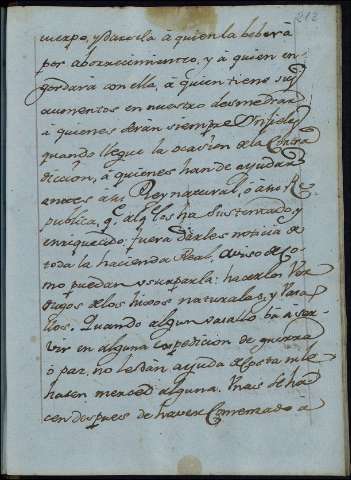 212
cuerpo, y darsela à quien la beberà
por aborrecimiento, y à quien en
gordarà con ella, à quien tiene sus
aumentos en nuestro desmedrar
à quienes seràn siempre
quando llegue la ocasion de la Contra
diccion, à quienes han de ayudar
antes à su Rey natural, ò a su Re
publica, q.e alq.e los ha Sustentado, y
enriquecido: fuera darles noticia de
toda la hacienda Real, aviso de co
mo puedan usurparla: hacerlos Ver
dugos de los hijos naturales, y Vasa
llos. Quando algun vasallo và à ser
vir en alguna expedicion de guerra
ò paz, no les dàn ayuda de costa ni le
hacen merced alguna. Mas se ha
cen despues de haver comenzado à